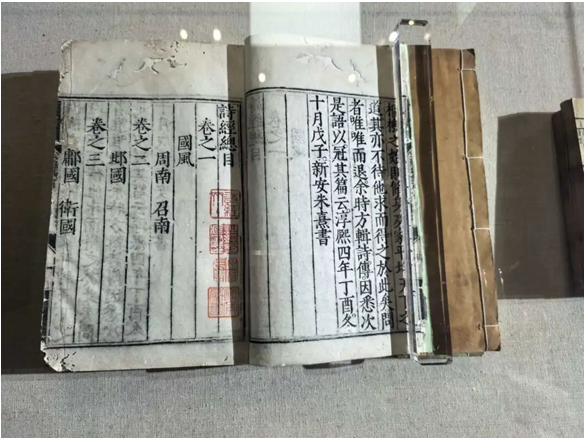 樞機之始則修身及家平均天下之
道其亦不待他求而得之於此矣問
者唯唯而退余時方輯詩傳因悉次
是語以冠其篇云淳熙四年丁酉冬
十月戊子新安朱熹書
詩經總目
卷之一
國風
周南 召南
卷之二
邶國
卷之三
鄘國 衛國